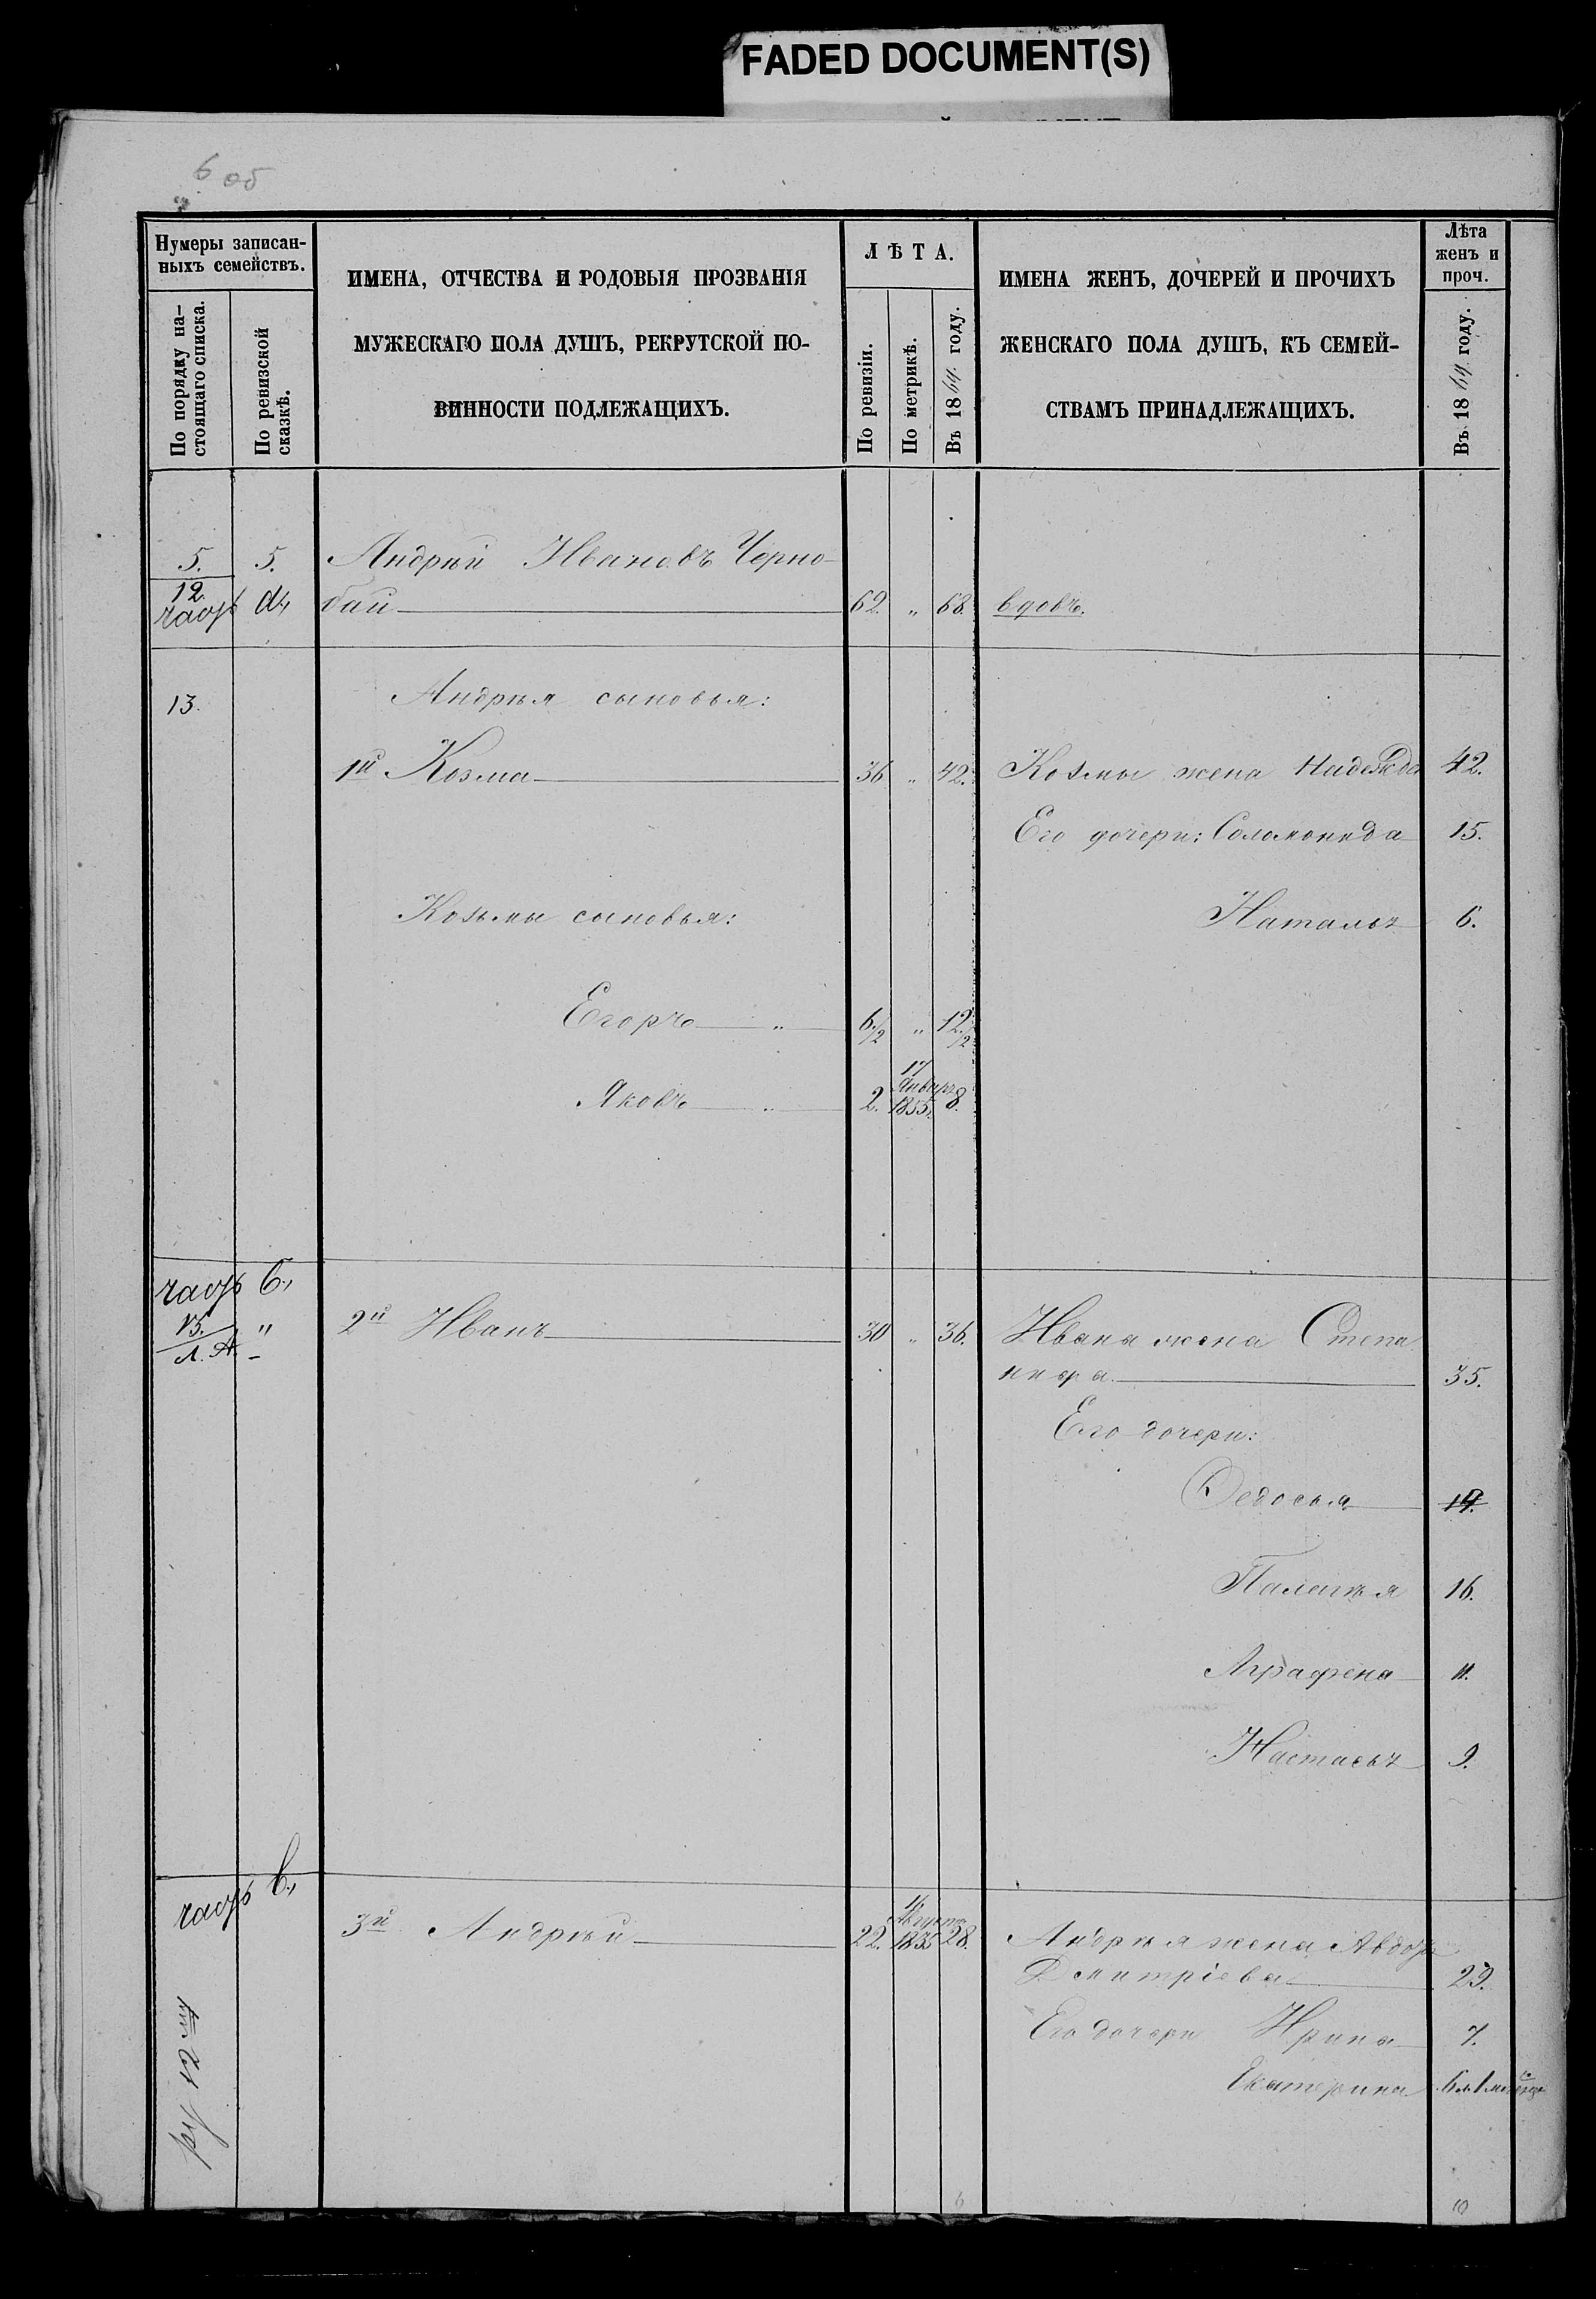 FADED DOCUMENT(S)
6 об
Нумеры записан-
ныхъ семействъ.
По порядку на-
стоящаго списка.
По ревизской
сказкѣ.
ИМЕНА, ОТЧЕСТВА И РОДОВЫЯ ПРОЗВАНІЯ
МУЖЕСКАГО ПОЛА ДУШЪ, РЕКРУТСКОЙ ПО-
ВИННОСТИ ПОДЛЕЖАЩИХЪ.
ЛѢТА.
По ревизіи.
По метрикѣ.
Въ 1864 году.
ИМЕНА ЖЕНЪ, ДОЧЕРЕЙ И ПРОЧИХЪ
ЖЕНСКАГО ПОЛА ДУШЪ, КЪ СЕМЕЙ-
СТВАМЪ ПРИНАДЛЕЖАЩИХЪ.
Лѣта
женъ и
проч.
Въ 1864 году.
5. 5. Андрѣй Ивановъ Черно-
12. часть а., бай 62. „ 68. вдовъ.
13. Андрѣя сыновья:
1й Козма 36 „ 42. Козмы жена Надежда 42.
Его дочери: Соломонида 15.
Козьмы сыновья: Наталья 6.
Егоръ „ 6 1/2 „ 12 1/2
17
Января
Яковъ „ 2. 1855. 8.
часть б.,
15. „ 2й Иванъ 30 „ 36. Ивана жена Степа
Л. А. – нида 35.
Его дочери:
Федосья 19.
Палагѣя 16.
Аграфена 11.
Настасья 9.
часть в.,
Августа
3й Андрѣй 22. 1835 28. Андрѣя жена Авдотья
Дмитріева 29.
Его дочери Ирина 7.
Екатерина
6
10